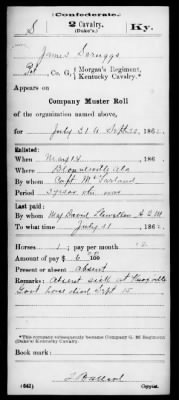 Confederate.
S 2 Cavalry. Ky.
(Duke's.)
James Scruggs
Pvt, Co. G, Morgan's Regiment, Kentucky Cavalry.*
Appears on
Company Muster Roll
of the organization named above,
for July 31 to Sept 30, 1862.
Enlisted:
When May 14, 186
Where Blountsville Ala
By whom Capt. McFarland
Period 3 years or the war
Last paid:
By whom Maj David
To what time July 11, 186
Horses 1; pay per month 12
Amount of pay $ 6
Present or absent Absent
Remarks: Absent sick at Knoxville
Sept 15
*This company subsequently became Company G, 2d Regiment (Duke's) Kentucky Cavalry.
Book mark:
(642) Copyist.